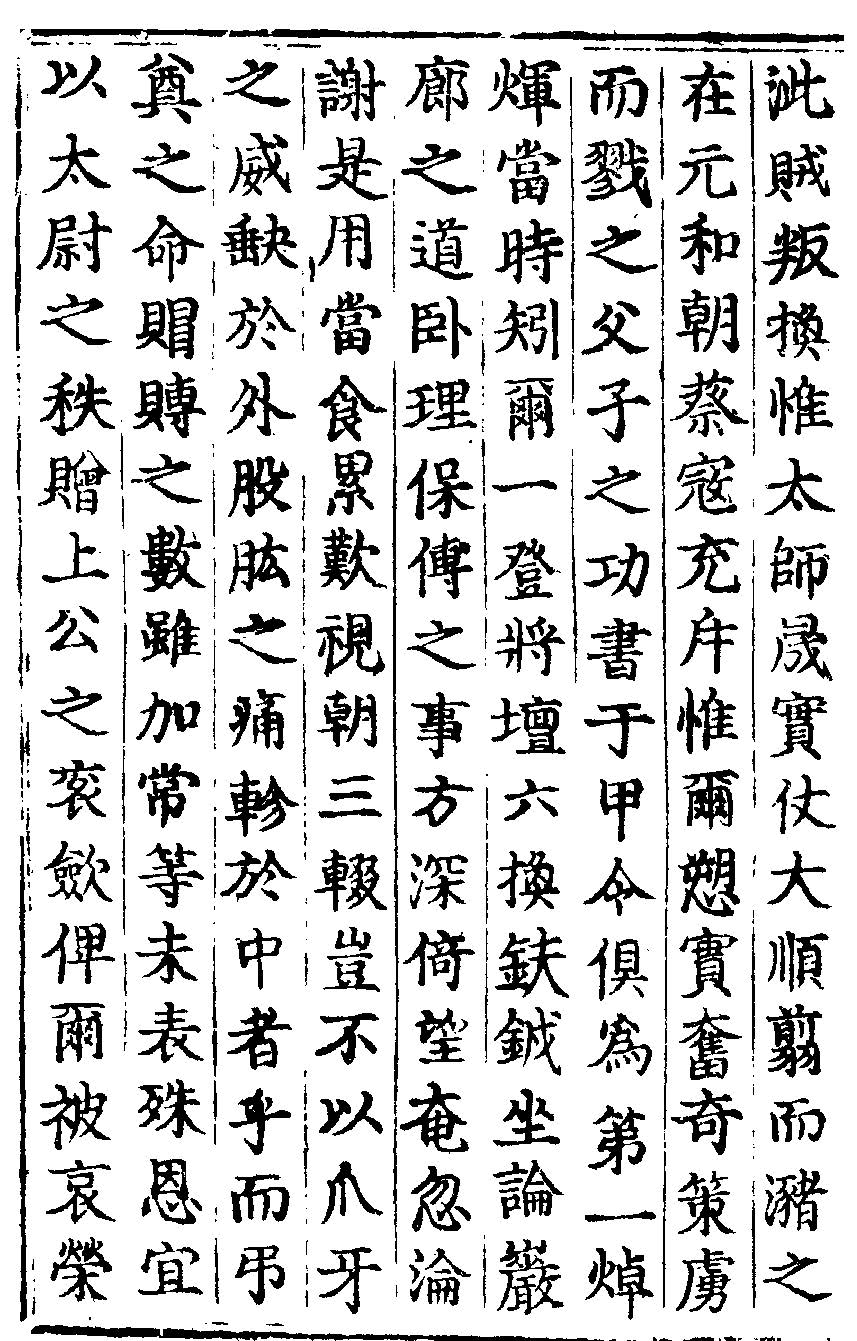 泚賊叛換惟太師晟實仗大順翦而瀦之
在元和朝蔡寇充斥惟爾愬實奮奇策虜
而戮之父子之功書于甲令俱爲第一焯
煇當時矧爾一登將壇六換鈇鉞坐論巖
廊之道卧理保傅之事方深倚望奄忽淪
謝是用當食累歎視朝三輟豈不以爪牙
之威缺於外股肱之痛軫於中者乎而弔
奠之命賵賻之數雖加常等未表殊恩宜
以太尉之秩贈上公之衮斂俾爾被哀榮